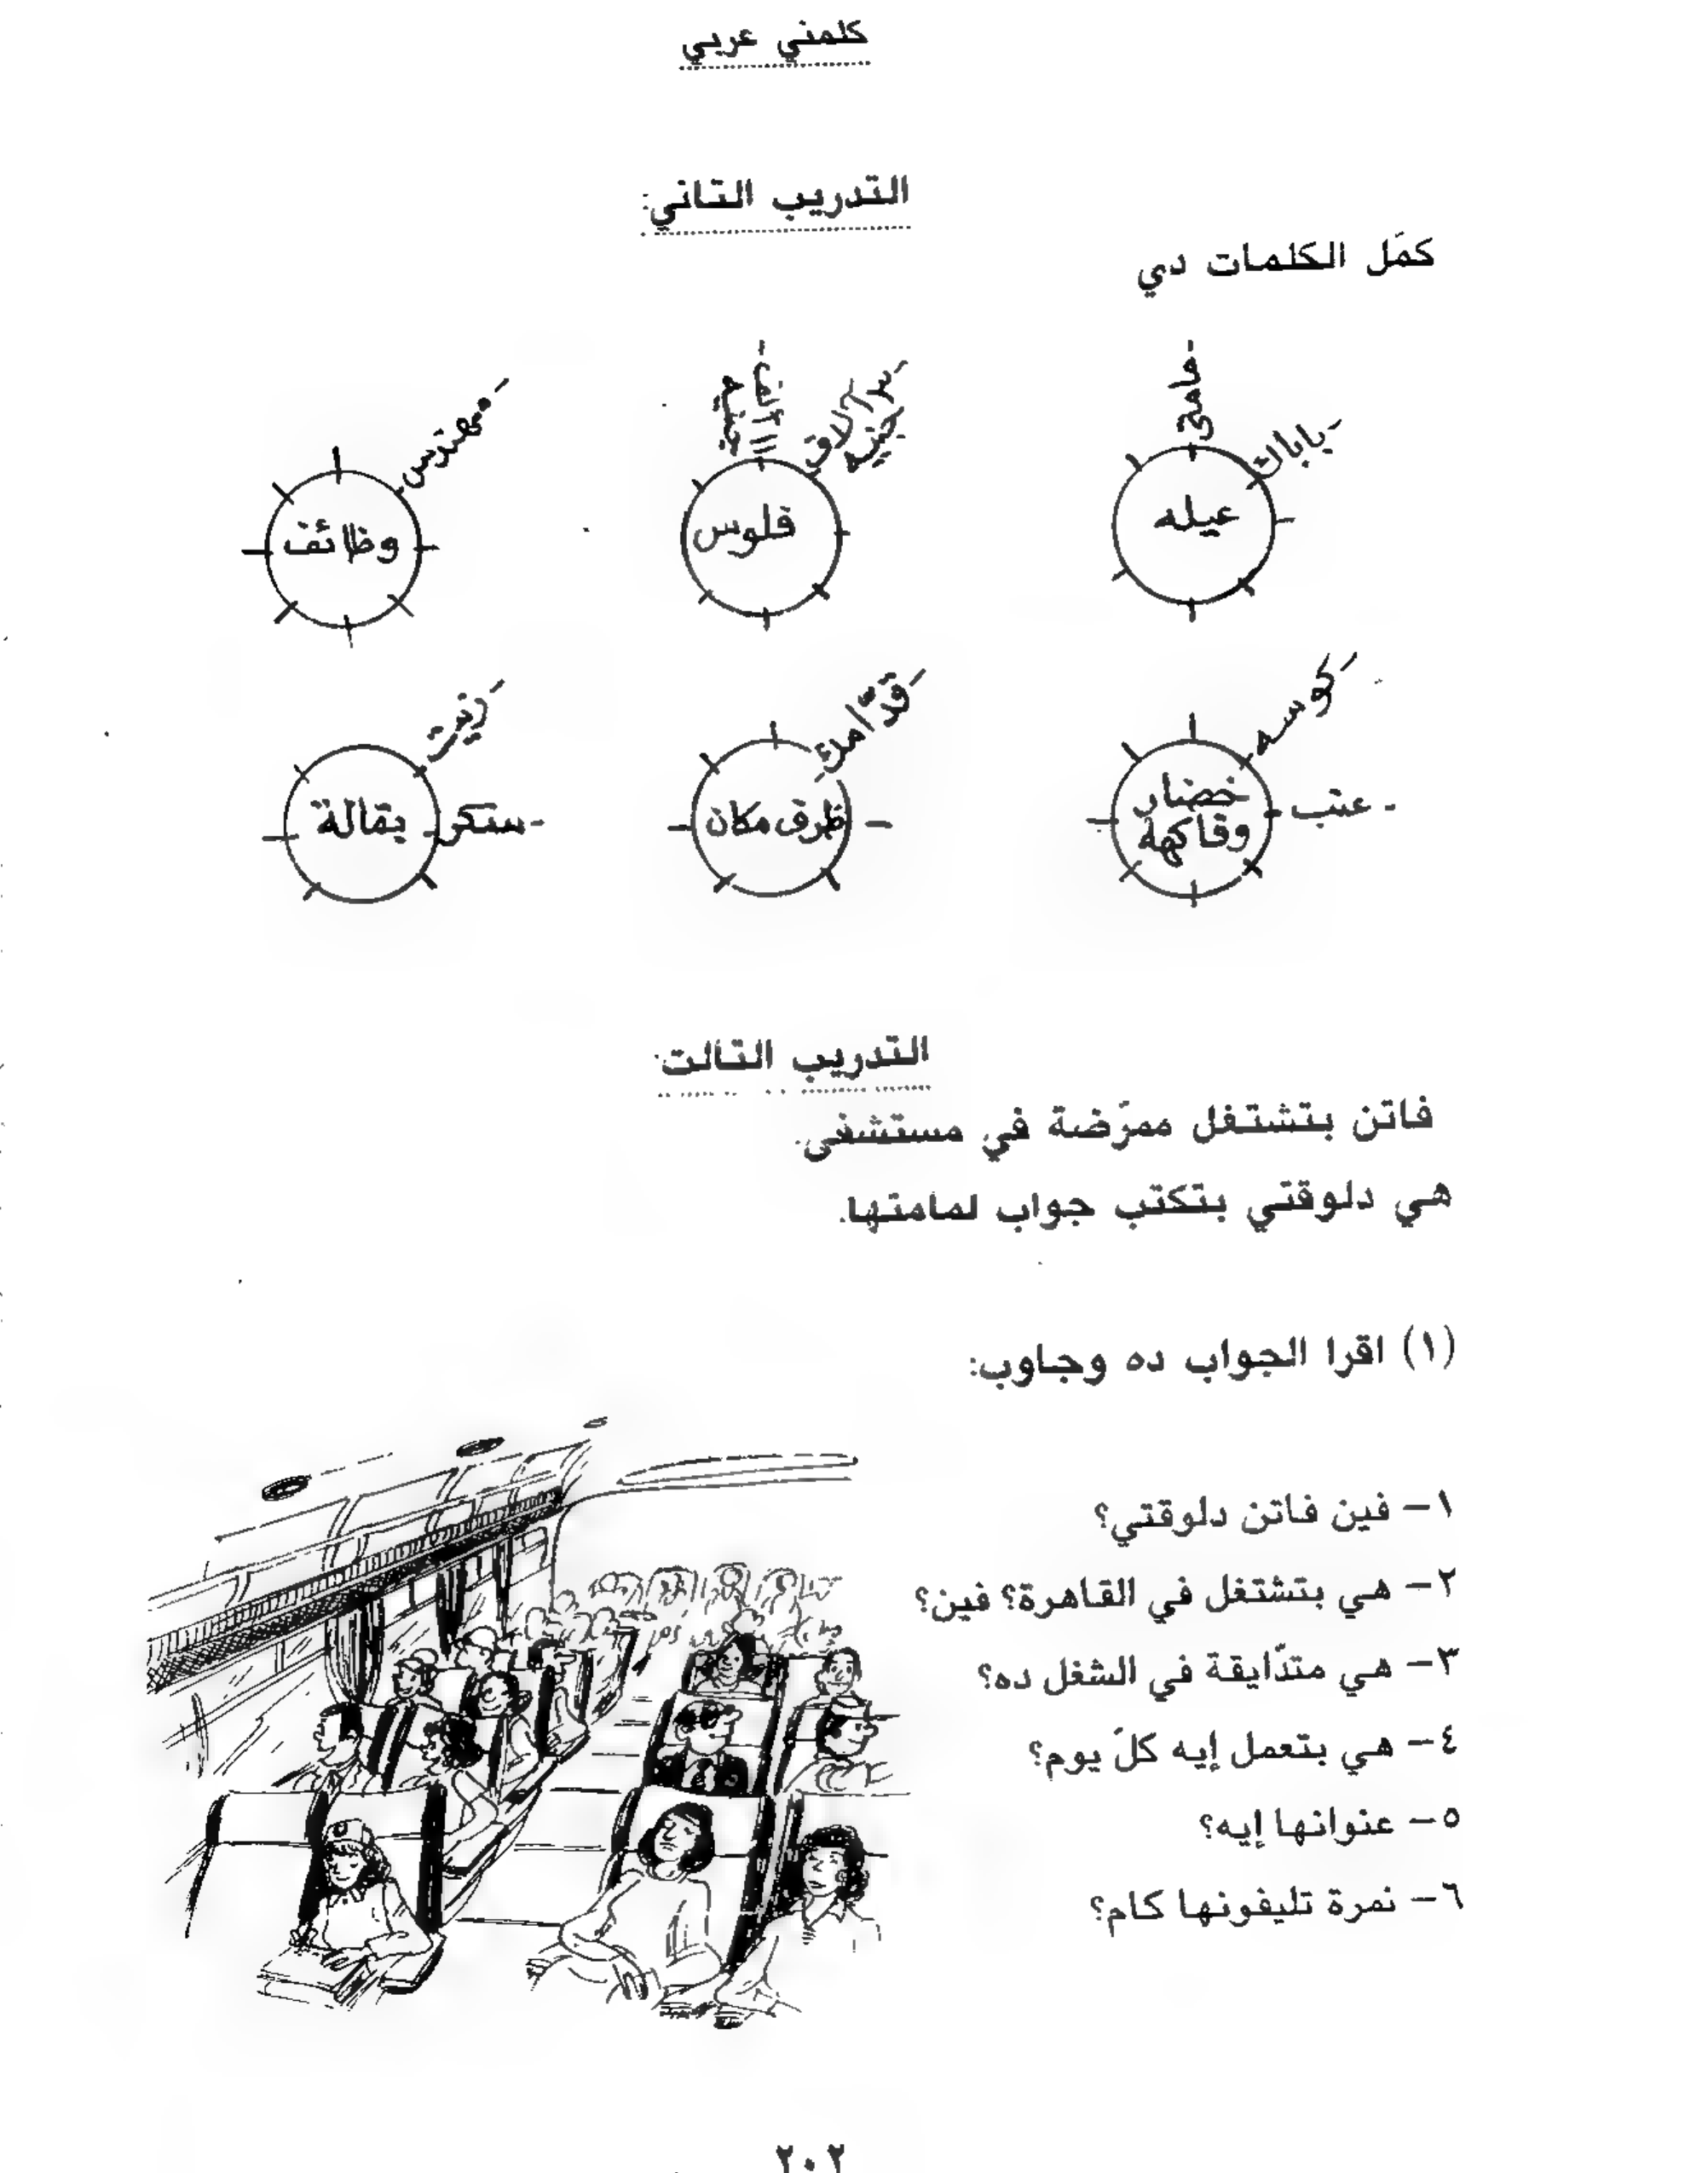 كلمني عربي
التدريب التاني:
كمّل الكلمات دي
عيله
- مامتى
- باباك
فلوس
- ٣ آلاف جنيه
وظائف
- مهندس
خضار وفاكهة
- كوسه
- عنب
ظرف مكان
- قدّامك
بقالة
- زيت
- سكر
التدريب التالت:
فاتن بتشتغل ممرّضة في مستشفى.
هي دلوقتي بتكتب جواب لمامتها.
(١) اقرا الجواب ده وجاوب:
١- فين فاتن دلوقتي؟
٢- هي بتشتغل في القاهرة؟ فين؟
٣- هي متدّايقة في الشغل ده؟
٤- هي بتعمل إيه كلّ يوم؟
٥- عنوانها إيه؟
٦- نمرة تليفونها كام؟
٢٠٢